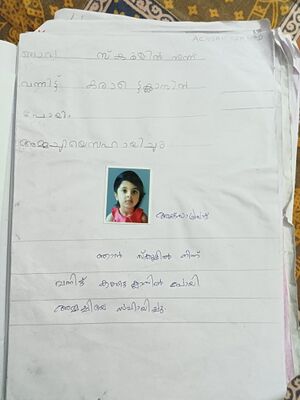 ഞാൻ സ്കൂളിൽ നിന്ന്
വന്നിട്ട് കരാട്ടെ ക്ലാസിൽ
പോയി.
അമ്മച്ചിയെ സഹായിച്ചു
ഞാൻ സ്കൂളിൽ നിന്ന്
വന്നിട്ട് കരാട്ടെ ക്ലാസിൽ പോയി
അമ്മച്ചിയെ സഹായിച്ചു